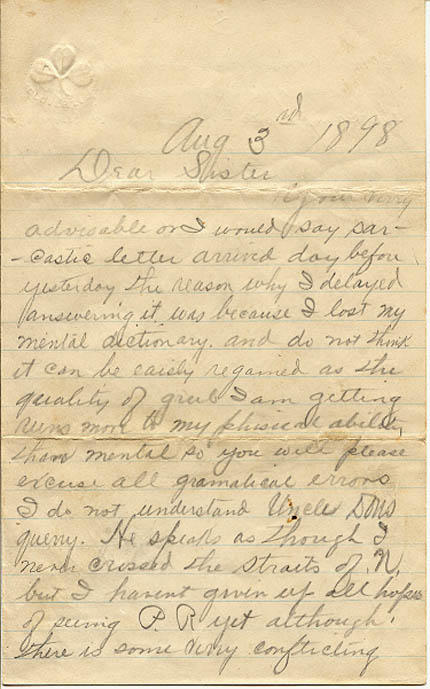 Aug 3rd 1898
Dear Sister
Your very
advisable or I would say sar-
-castic letter arrived day before
yesterday the reason why I delayed
answering it was because I lost my
mental dictionary. and do not think
it can be eaisly regained as the
quality of grub I am getting
runs more to my phisical ability
than mental so you will please
excuse all gramatical errors
I do not understand Uncle Dons
query. He speaks as though I
never crossed the straits of N,
but I havent given up all hopes
of seeing P. R yet although
there is some very conflicting